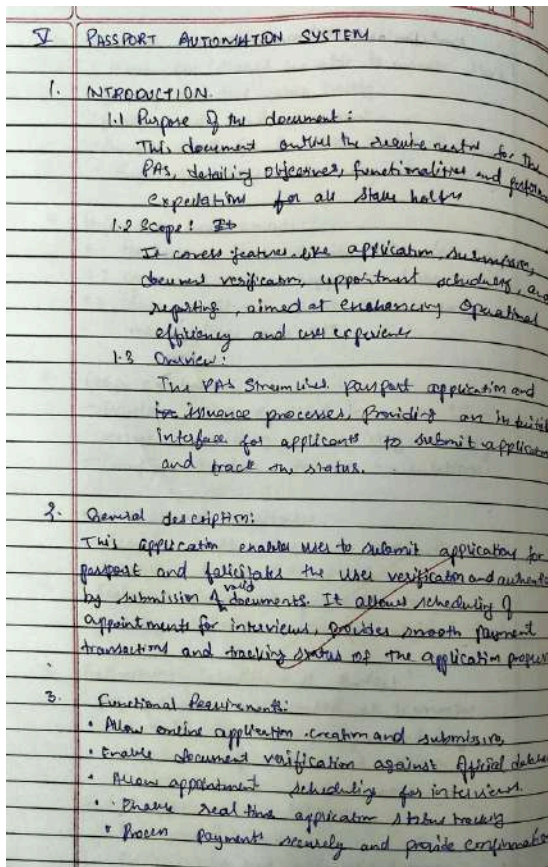 V PASSPORT AUTOMATION SYSTEM
1. INTRODUCTION.
1.1 Purpose of the document:
This document outlines the requirements for the
PAS, detailing objectives, functionalities and perform
expectations for all stake holders
1.2 Scope:
It covers features like application submission,
document verification, appointment scheduling, and
reporting, aimed at enhancing operational
efficiency and user experience
1.3 Overview:
The PAS Streamlines passport application and
issuance processes, Providing an intuiti
interface for applicants to submit application
and track the status.
2. General description:
This application enables user to submit applications for
passport and felicitates the user verification and authenti
by submission of valid documents. It allows scheduling of
appointments for interviews, provides smooth payment
transactions and tracking status of the application progress
3. Functional Requirements:
• Allow online application creation and submission,
• Enable document verification against official databa
• Allow appointment scheduling for interviews.
• Enable real time application status tracking
• Process Payments securely and provide confirmation